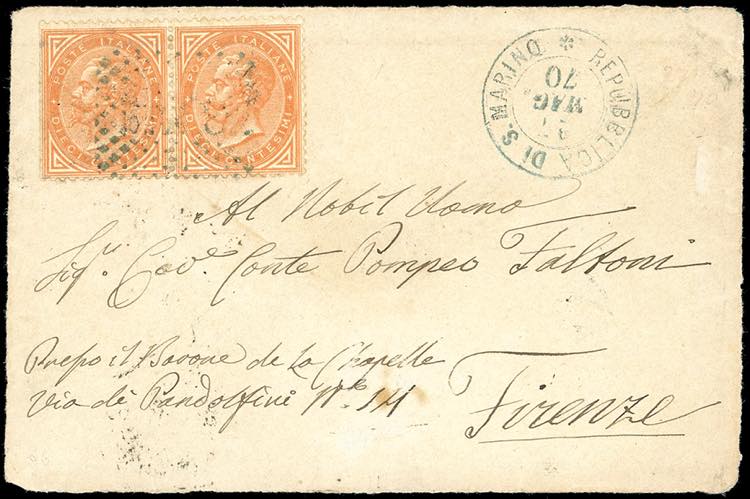 POSTE ITALIANE
DIECI CENTESIMI
POSTE ITALIANE
DIECI CENTESIMI
REPUBBLICA DI S. MARINO *
MAG
70
Al Nobil Uomo
Sigr. Cave. Conte Pompeo Faltoni
Presso il Barone de La Chapelle
Via de' Pandolfini No. 14
Firenze